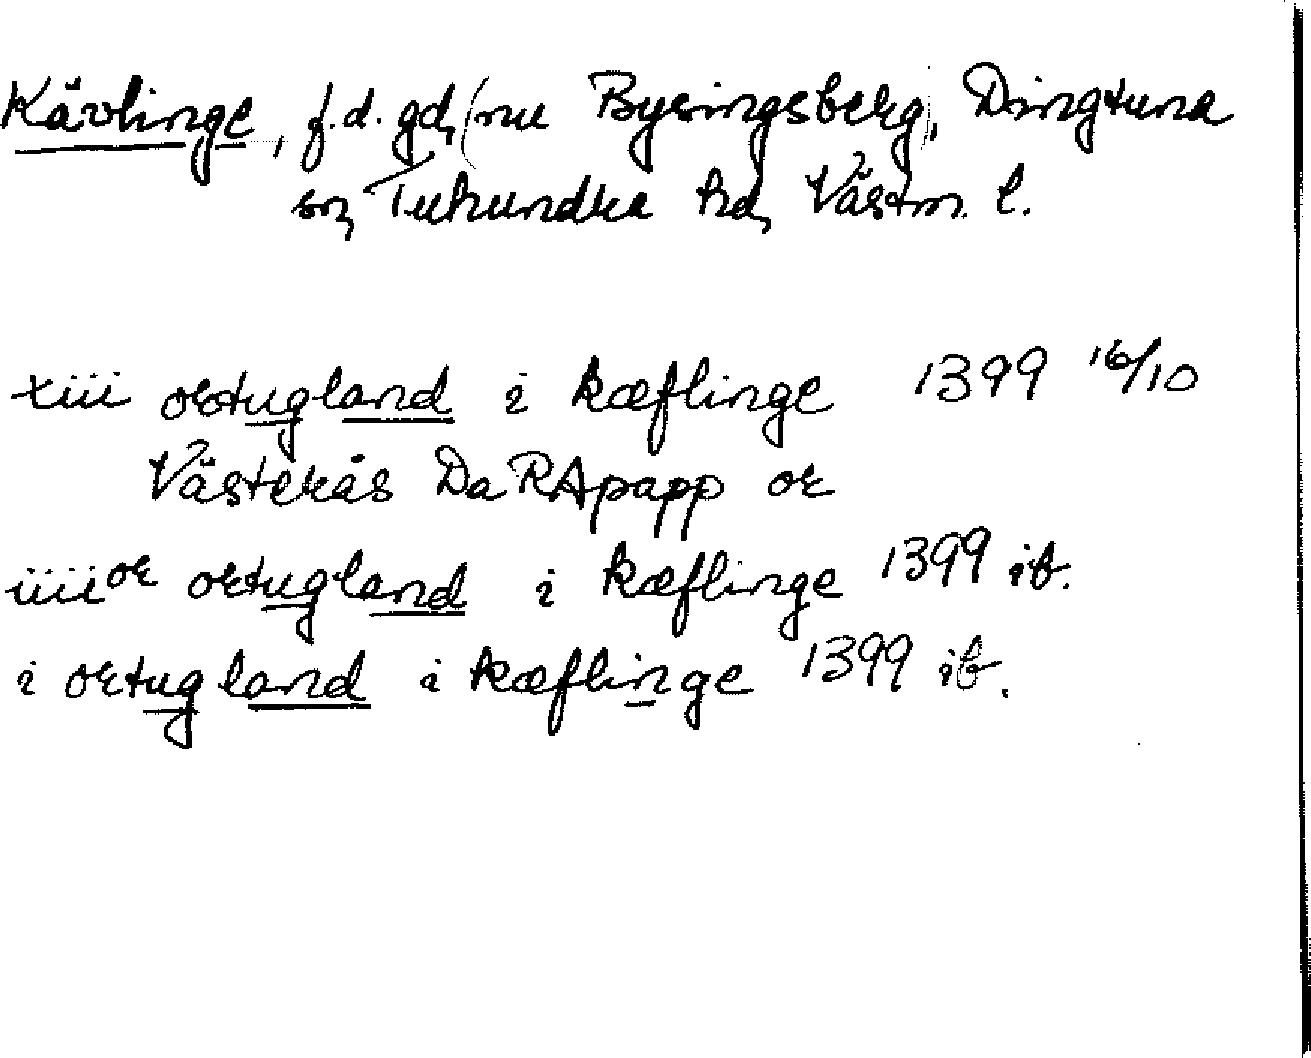 Kävlinge, f.d. gd, (nu Bysingsberg), Dingtuna
sn, Tuhundra hd, Västm. l.
xiii ortugland i kæflinge 1399 16/10
Västerås Da RApapp or
iiii or ortugland i kæflinge 1399 ib.
i ortugland i kæflinge 1399 ib.